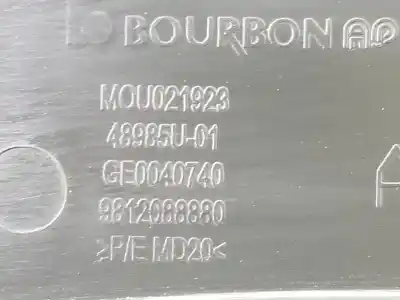 BOURBON AP
MOU021923
48985U-01
GE0040740
9812088880
>P/E MD20<
A